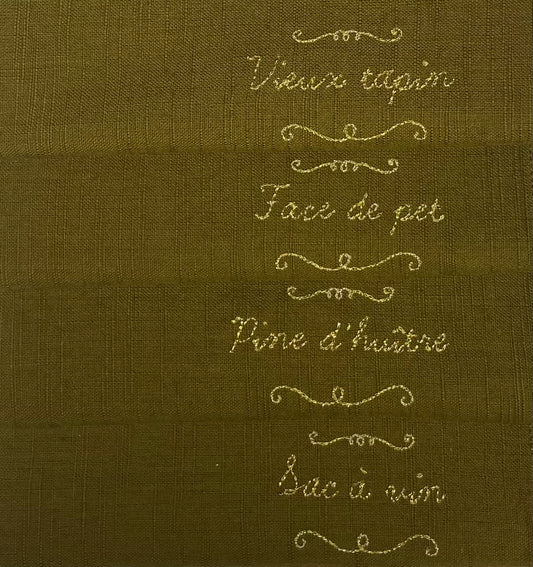 Vieux tapin
Face de pet
Pine d'huître
Sac à vin